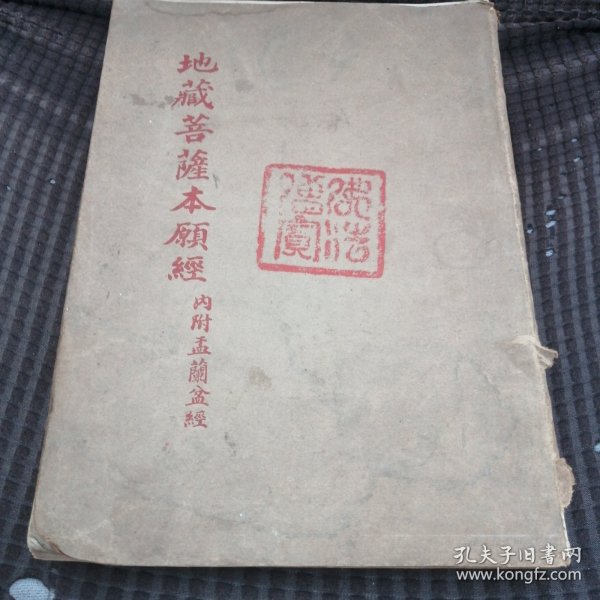 地藏菩薩本願經
內附盂蘭盆經
佛法僧寶
孔夫子旧书网
www.kongfz.com